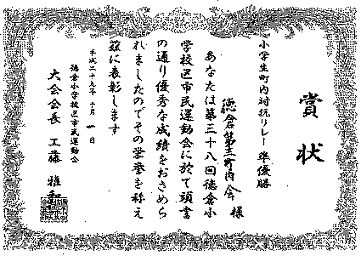 賞状
小学生町内対抗リレー 準優勝
徳倉第三町内会 様
あなたは第三十八回徳倉小
学校区市民運動会に於て頭書
の通り優秀な成績をおさめら
れましたのでその栄誉を称え
茲に表彰します
平成二十九年 十月 一日
徳倉小学校区市民運動会
大会会長 工藤 雅